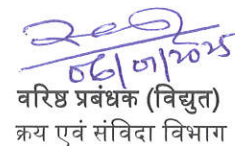 06/01/2025
वरिष्ठ प्रबंधक (विद्युत)
क्रय एवं संविदा विभाग